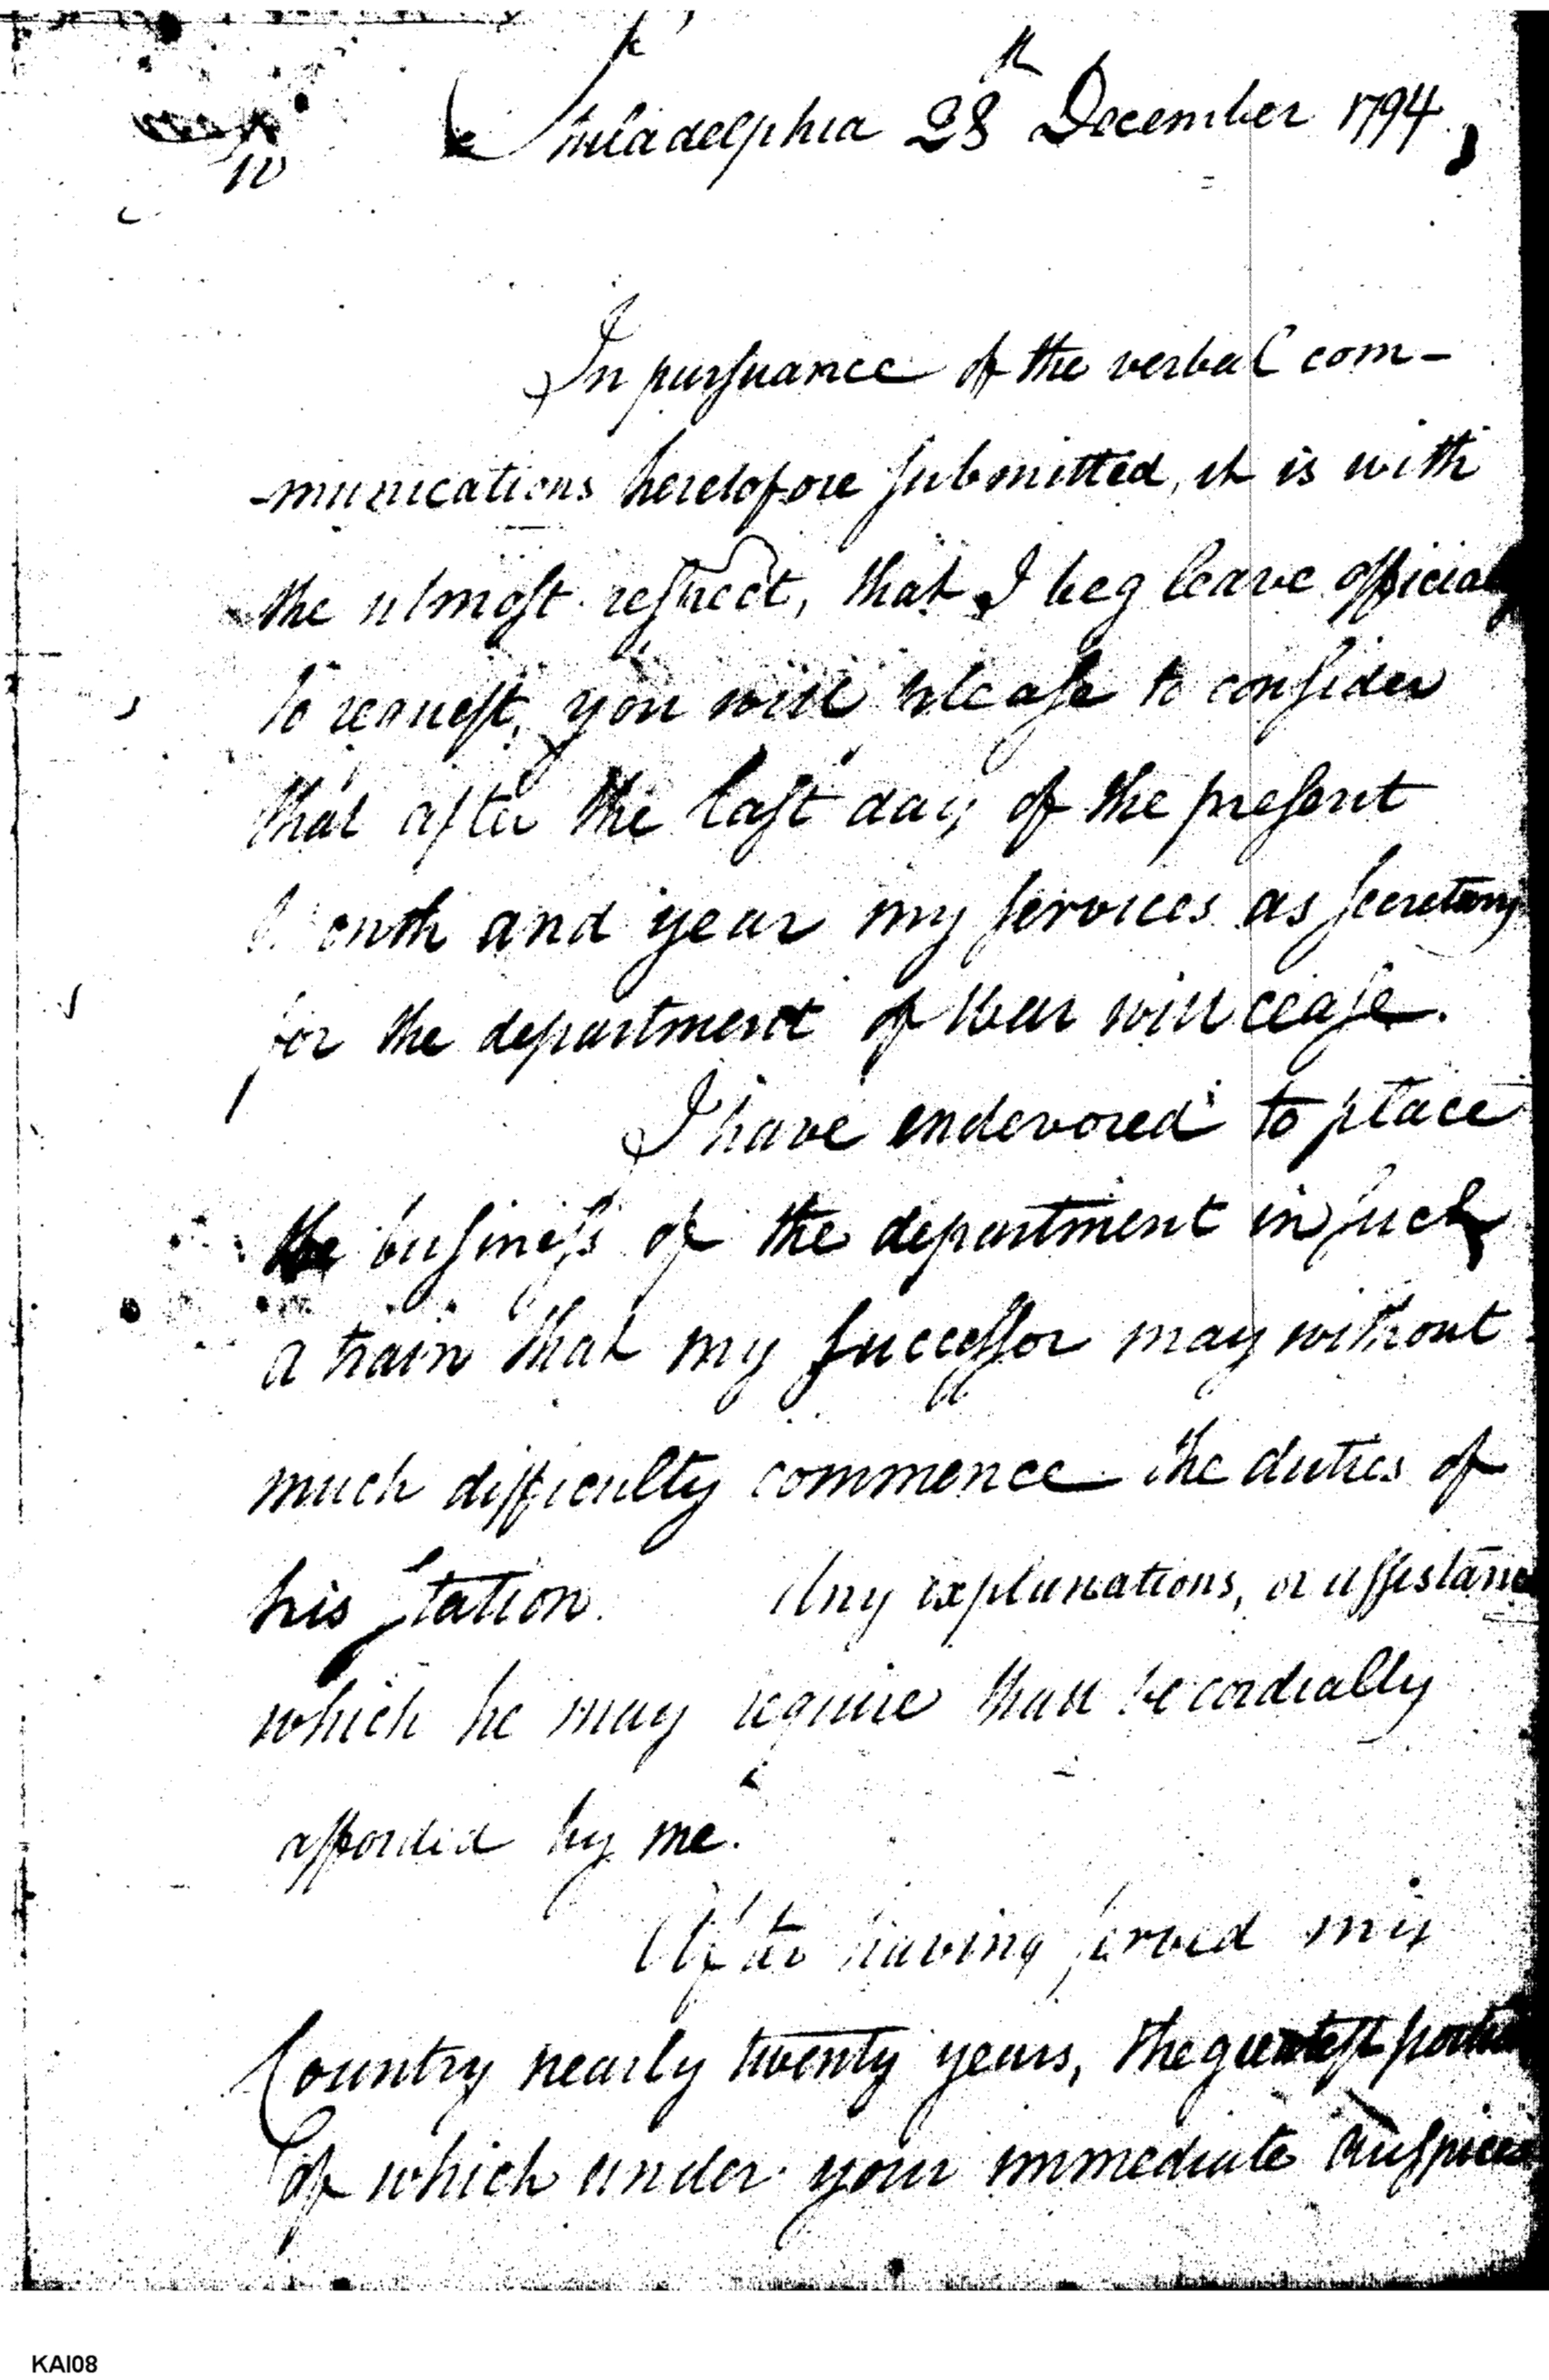 Philadelphia 28th December 1794
In pursuance of the verbal com-
-munications heretofore submitted, it is with
the utmost respect, that I beg leave officially
to request, you will please to consider
that after the last day of the present
Month and year my services as secretary
for the department of War will cease.
I have endevored to place
the business of the department in such
a train that my successor may without
much difficulty commence the duties of
his station. Any explanations, or assistance
which he may require shall be cordially
afforded by me.
After having served my
Country nearly twenty years, the greatest portion
of which under your immediate auspices
KAI08